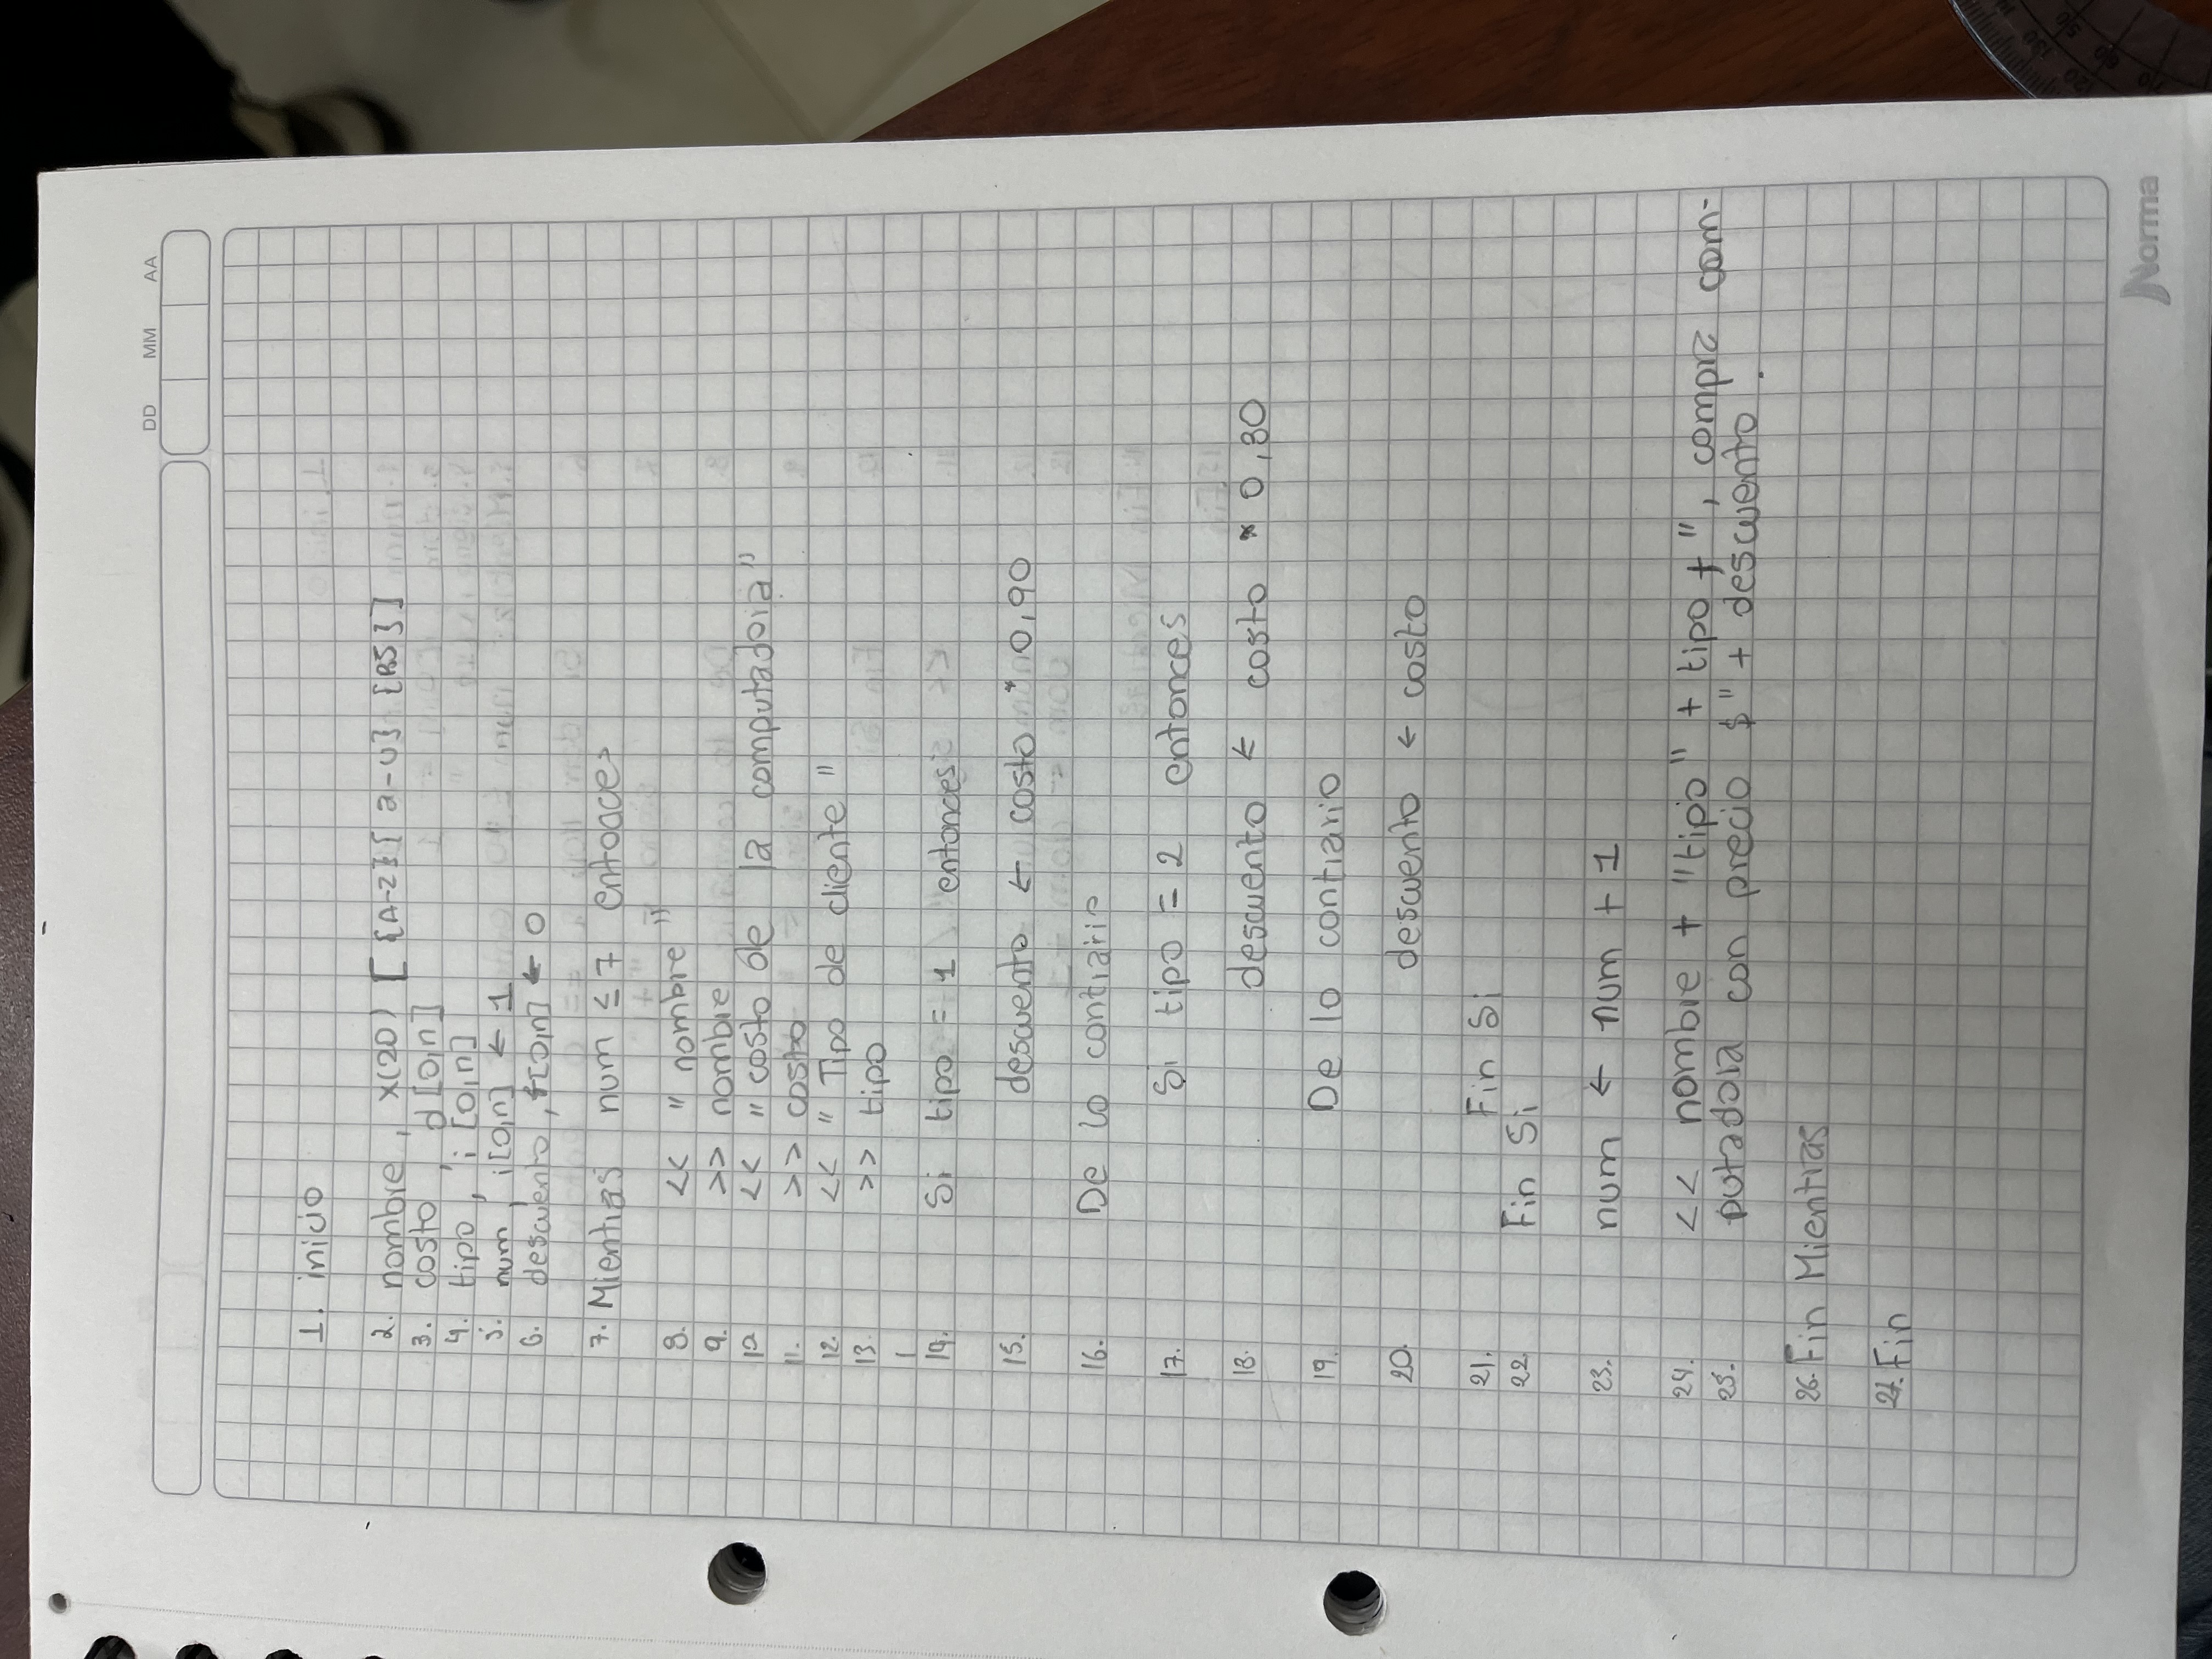 DD MM AA
1. inicio
2. nombre, x(20) [ {A-Z} { a-u} {BS}]
3. costo, d[0,n]
4. tipo, i [0,n]
5. num, i[0,n] ← 1
6. descuento, f[0,n] ← 0
7. Mientras num ≤ 7 entonces
8. << " nombre "
9. >> nombre
10 << " costo de la computadora"
11. >> costo
12. << " Tipo de cliente "
13. >> tipo
1
14. Si tipo = 1 entonces
15. descuento ← costo * 0,90
16. De lo contrario
17. Si tipo = 2 entonces
18. descuento ← costo * 0,80
19. De lo contrario
20. descuento ← costo
21. Fin Si
22. Fin Si
23. num ← num + 1
24. << nombre + "tipo" + tipo + ", compra com-
25. putadora con precio $" + descuento.
26. Fin Mientras
27. Fin
Norma